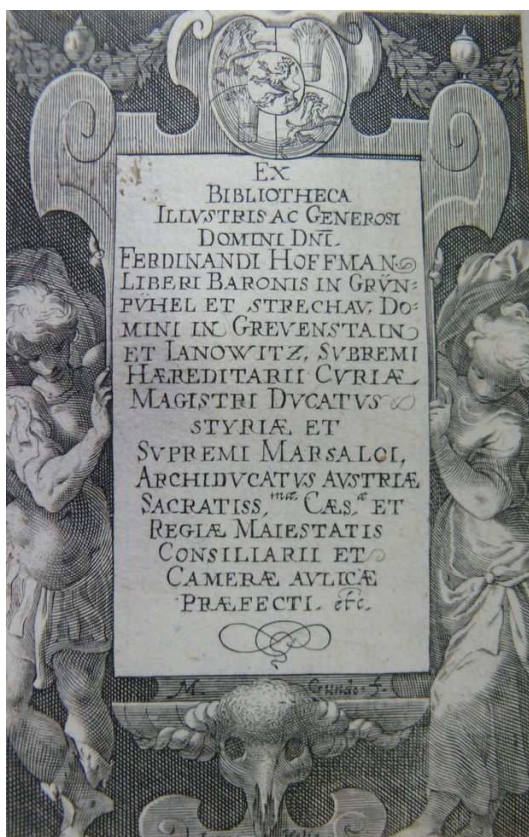 EX
BIBLIOTHECA
ILLVSTRIS AC GENEROSI
DOMINI DNĪ.
FERDINANDI HOFFMAN
LIBERI BARONIS IN GRÜN=
PÜHEL ET STRECHAV, DO=
MINI IN GREVENSTAIN
ET IANOWITZ, SVBREMI
HÆREDITARII CVRIÆ
MAGISTRI DVCATVS
STYRIÆ ET
SVPREMI MARSALCI,
ARCHIDVCATVS AVSTRIÆ
SACRATISS, mæ CÆS, æ ET
REGIÆ MAIESTATIS
CONSILIARII ET
CAMERÆ AVLICÆ
PRÆFECTI. etc.
M.